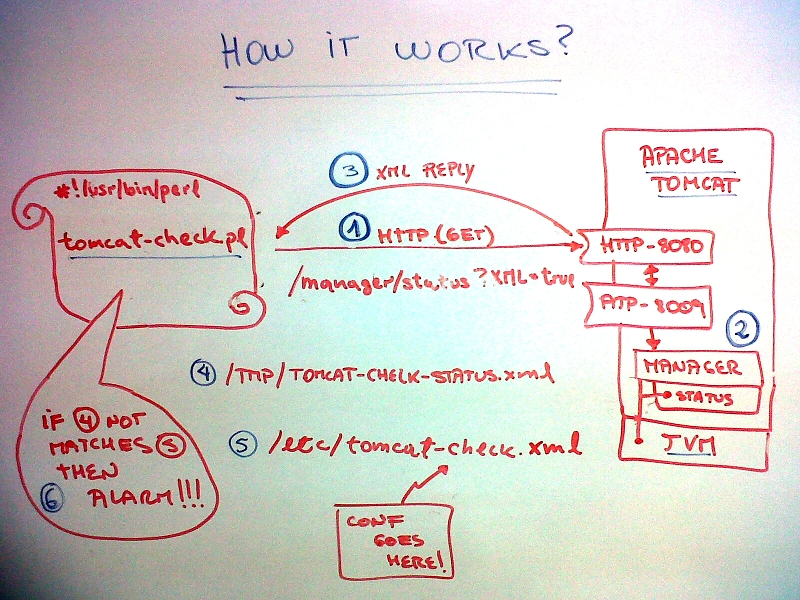 HOW IT WORKS?
#!/usr/bin/perl
tomcat-check.pl
3 XML REPLY
1 HTTP (GET)
/manager/status?XML=true
APACHE
TOMCAT
HTTP-8080
AJP-8009
2
MANAGER
STATUS
JVM
4 /TMP/TOMCAT-CHECK-STATUS.xml
5 /etc/tomcat-check.xml
CONF
GOES
HERE!
IF 4 NOT
MATCHES 5
THEN
6 ALARM!!!